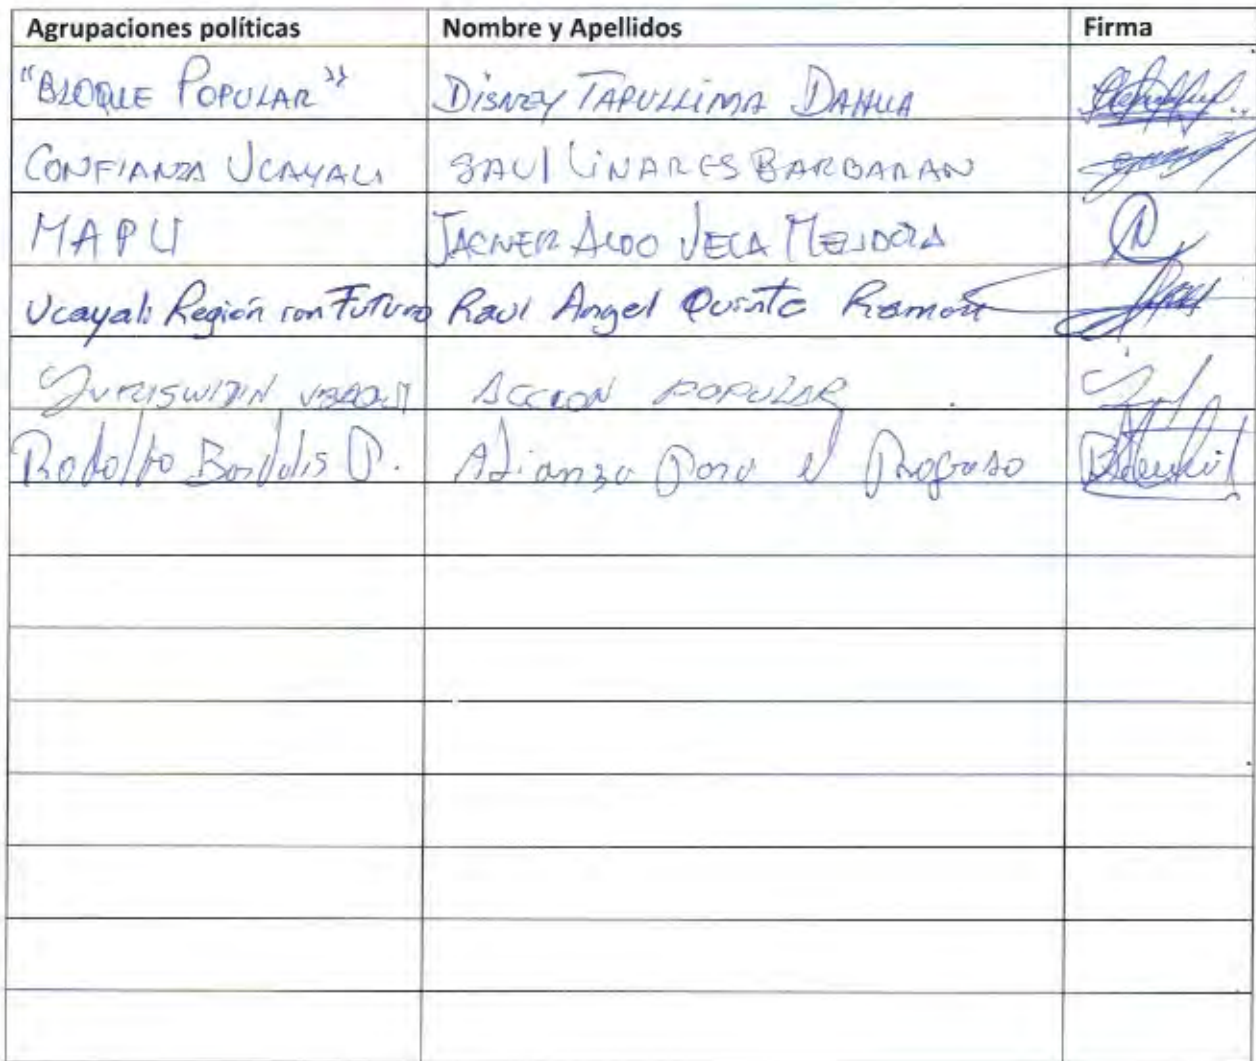 Agrupaciones políticas Nombre y Apellidos Firma
"BLOQUE POPULAR" DISNEY TAPULLIMA DAHUA
CONFIANZA UCAYALI SAUL LINARES BARBARAN
MAPU ALDO
Ucayali Región con Futuro Raul Angel Quinto Ramon
ACCION POPULAR
Rodolfo P. Alianza Para el Progreso